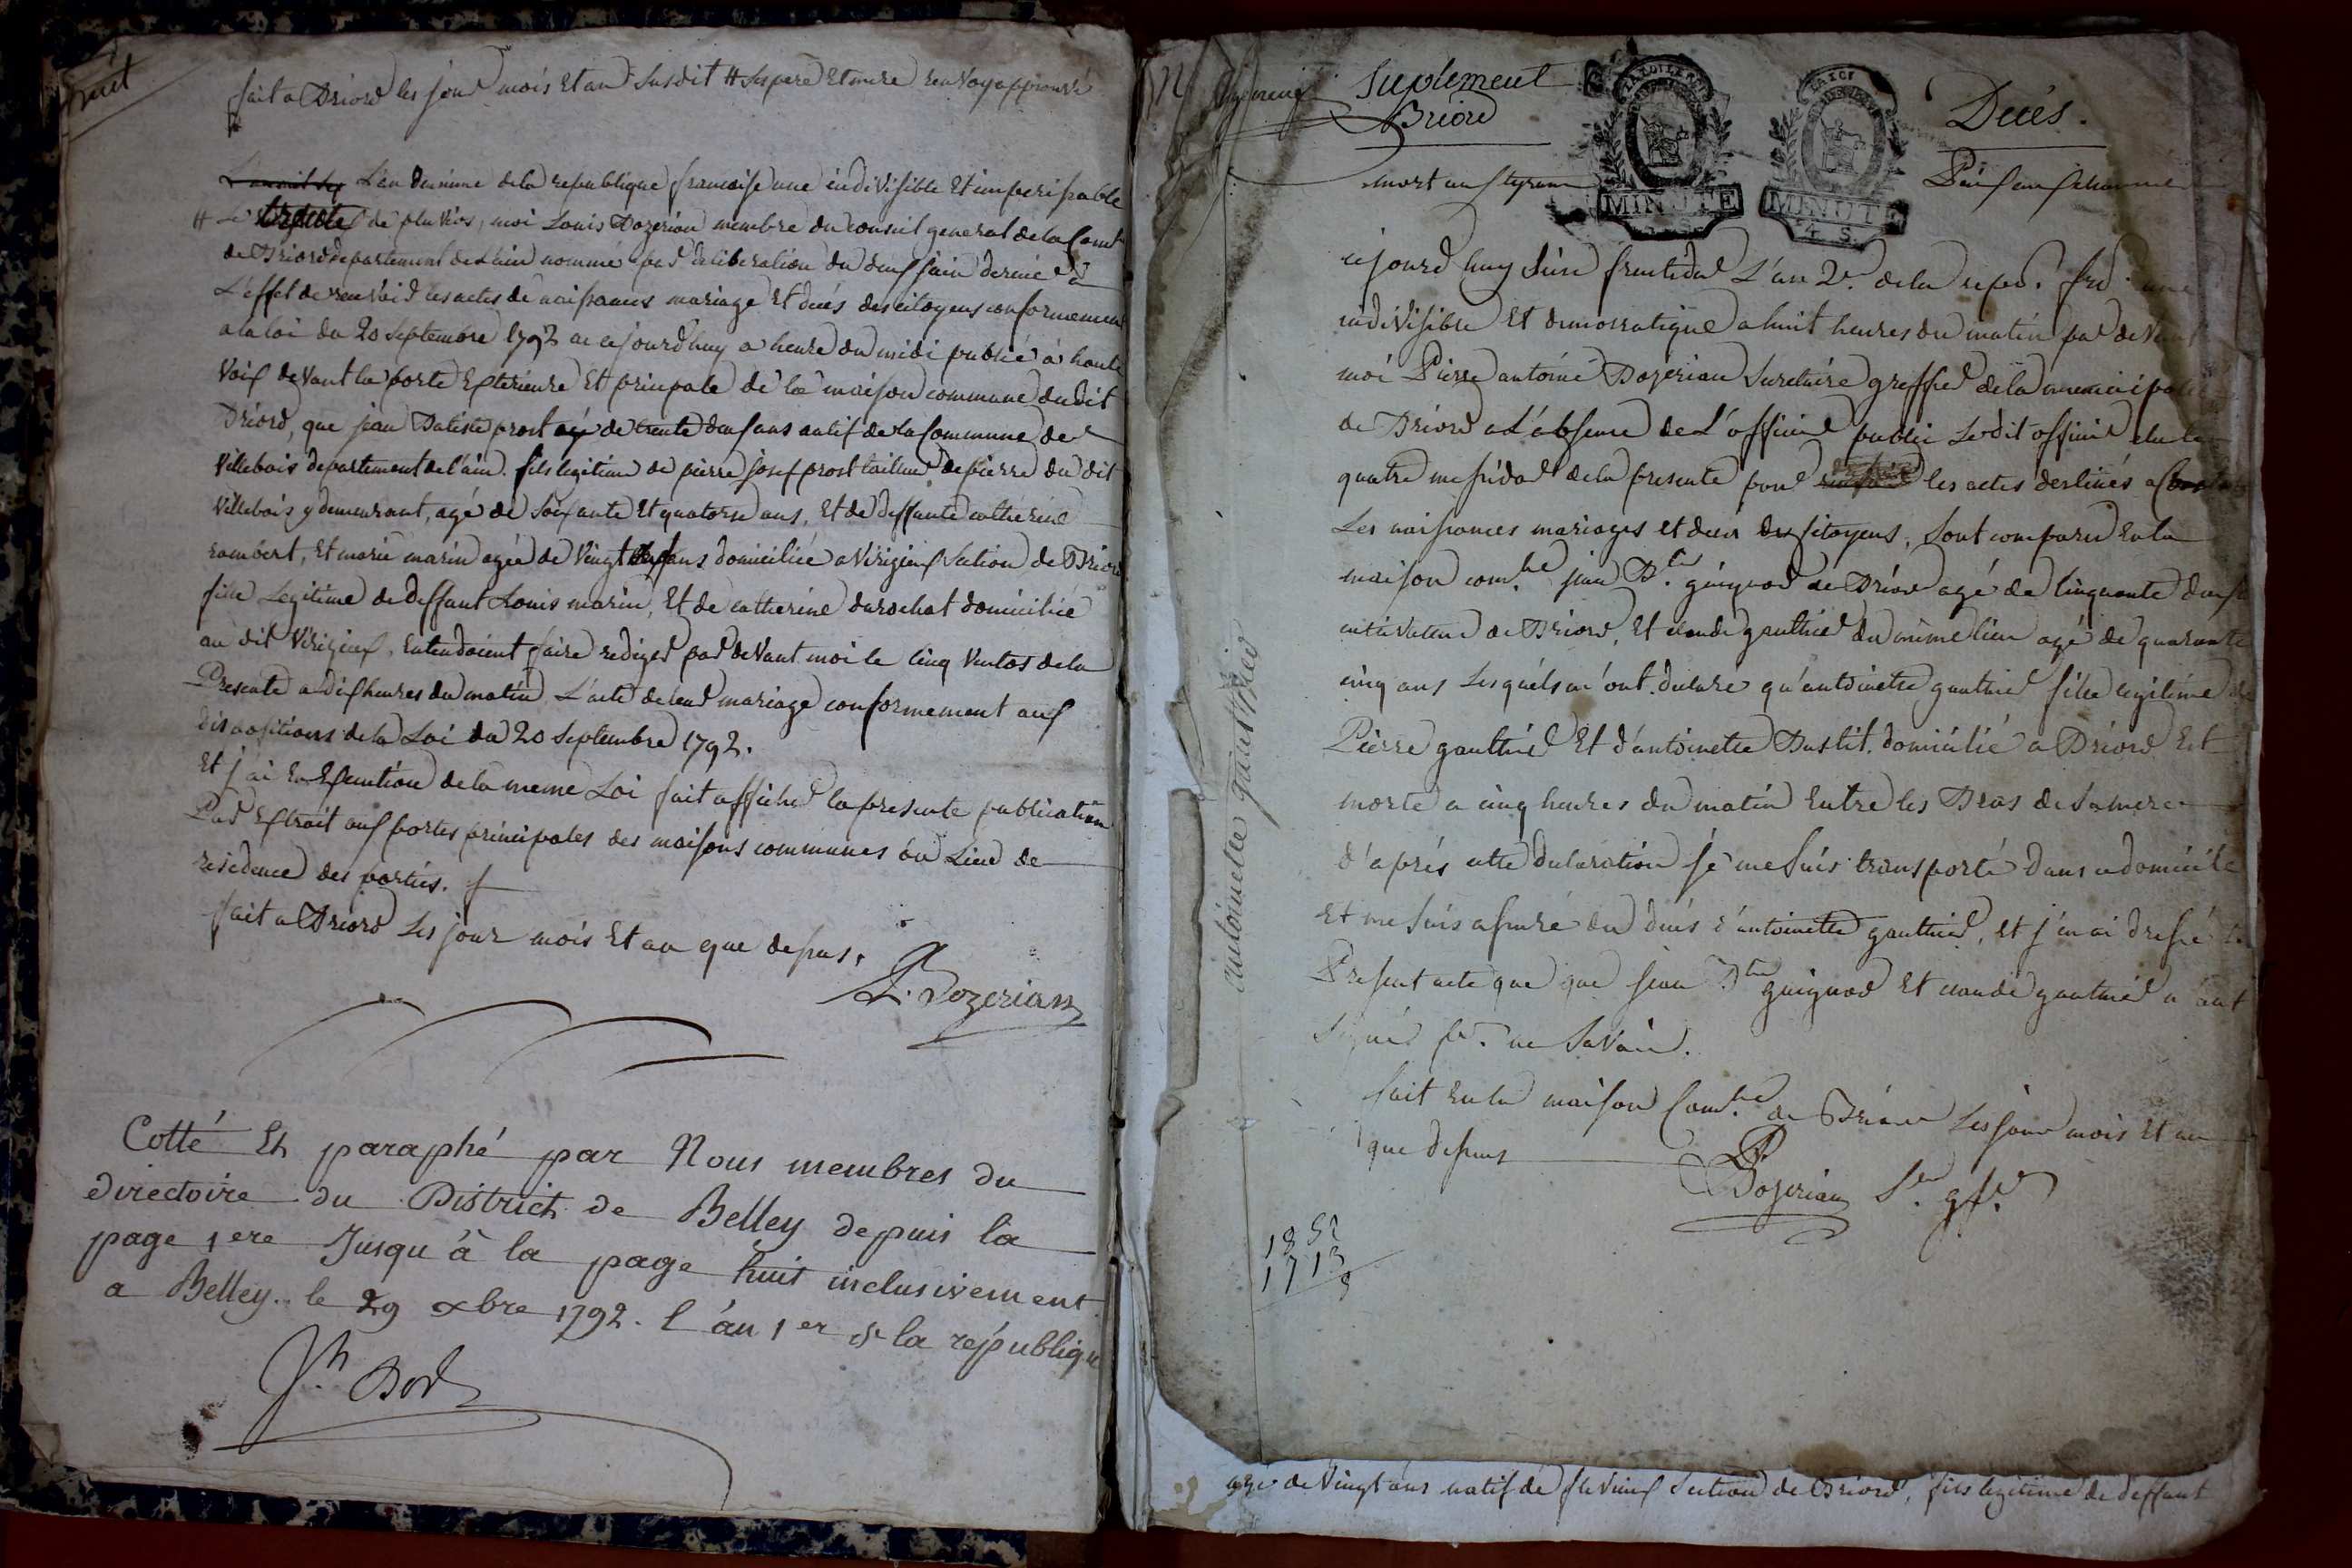 huit
fait a Briord les jour mois et an susdit # ses pere et mere renvoy approuvé
L'an deuxième de la republique francaise une indivisible et imperissable
# Le de pluvios, moi Louis Dozerian membre du conseil general de la Comm
de Briord departement de Lain nommé par deliberation du deux juin dernié à
L'effet de recevoir les actes de naissances mariage et decés des citoyens conformement
a la loi du 20 septembre 1792 ai cejourdhuy a heure du midi publié à haute
voix devant la porte Exterieure et principale de la maison commune dudit
Briord, que jean Batiste prost agé de trente deux ans natif de la Commune de
villebois departement de l'ain. fils legitime de pierre josef prost tailleur de pierre du dit
villebois y demeurant, agé de soixante et quatorse ans, et de deffunte catherine
rambert, et marie marin agée de vingt ans domiciliée a Virigieux section de Briord
fille Legitime de deffunt Louis marin, et de catherine durochat domiciliée
au dit Virigieux, entendoient faire rediger par devant moi le cinq ventos de la
Presente a dix heures du matin L'acte de leur mariage conformement aux
dispositions de la Loi du 20 septembre 1792.
Et j'ai en Execution de la meme Loi fait affiché la presente publication
Par Extrait aux portes principales des maisons communes du Lieu de
residence des parties.
fait a Briord Les jour mois et an que dessus.
L. Dozerian
Cotté Et paraphé par Nous membres du
directoire du District de Belley depuis la
page 1ere Jusqu'à la page huit inclusivement
a Belley le 29 xbre 1792. l'an 1er de la république
Suplement
Briord
Decés.
mort aux tyrans
MINUTE
MINUTE
4 S
Paix aux chaumie
cejourd huy seise frimédar L'an 2e. de la repu. fr. une
indivisible et democratique a huit heures du matin par devant
moi Pierre antoine Dozerian secretaire greffier de la municipali
de Briord a L'absence de L'officier public Ledit officier elu le
quatre messidor de la presente pour les actes destinés a
Les naissances mariages et decés des citoyens, sont comparu en la
maison com.ne jean B.te guignod de Briord agé de cinquante deux
cultivateur de Briord, et claude gauthier du même lieu agé de quarante
cinq ans Lesquels m'ont declaré qu'antoinette gauthier fille legitime de
Pierre gauthier et d'antoinette domicilié a Briord est
morte a cinq heures du matin entre les Bras de sa mere
d'aprés cette declaration je me suis transporté dans ce domicile
et me suis assuré du decés d'antoinette gauthier, et j'en ai dressé le
Present acte que que jean B.te guignod et claude gauthier n'ont
signé pr. ne savoir.
fait en la maison Com.ne de Briord Les jour mois et an
que dessus
P. Dozerian S.re gf.r
antoinette gauthier
1852
1713
9
agé de vingt ans natif de section de Briord, fils legitime de deffunt